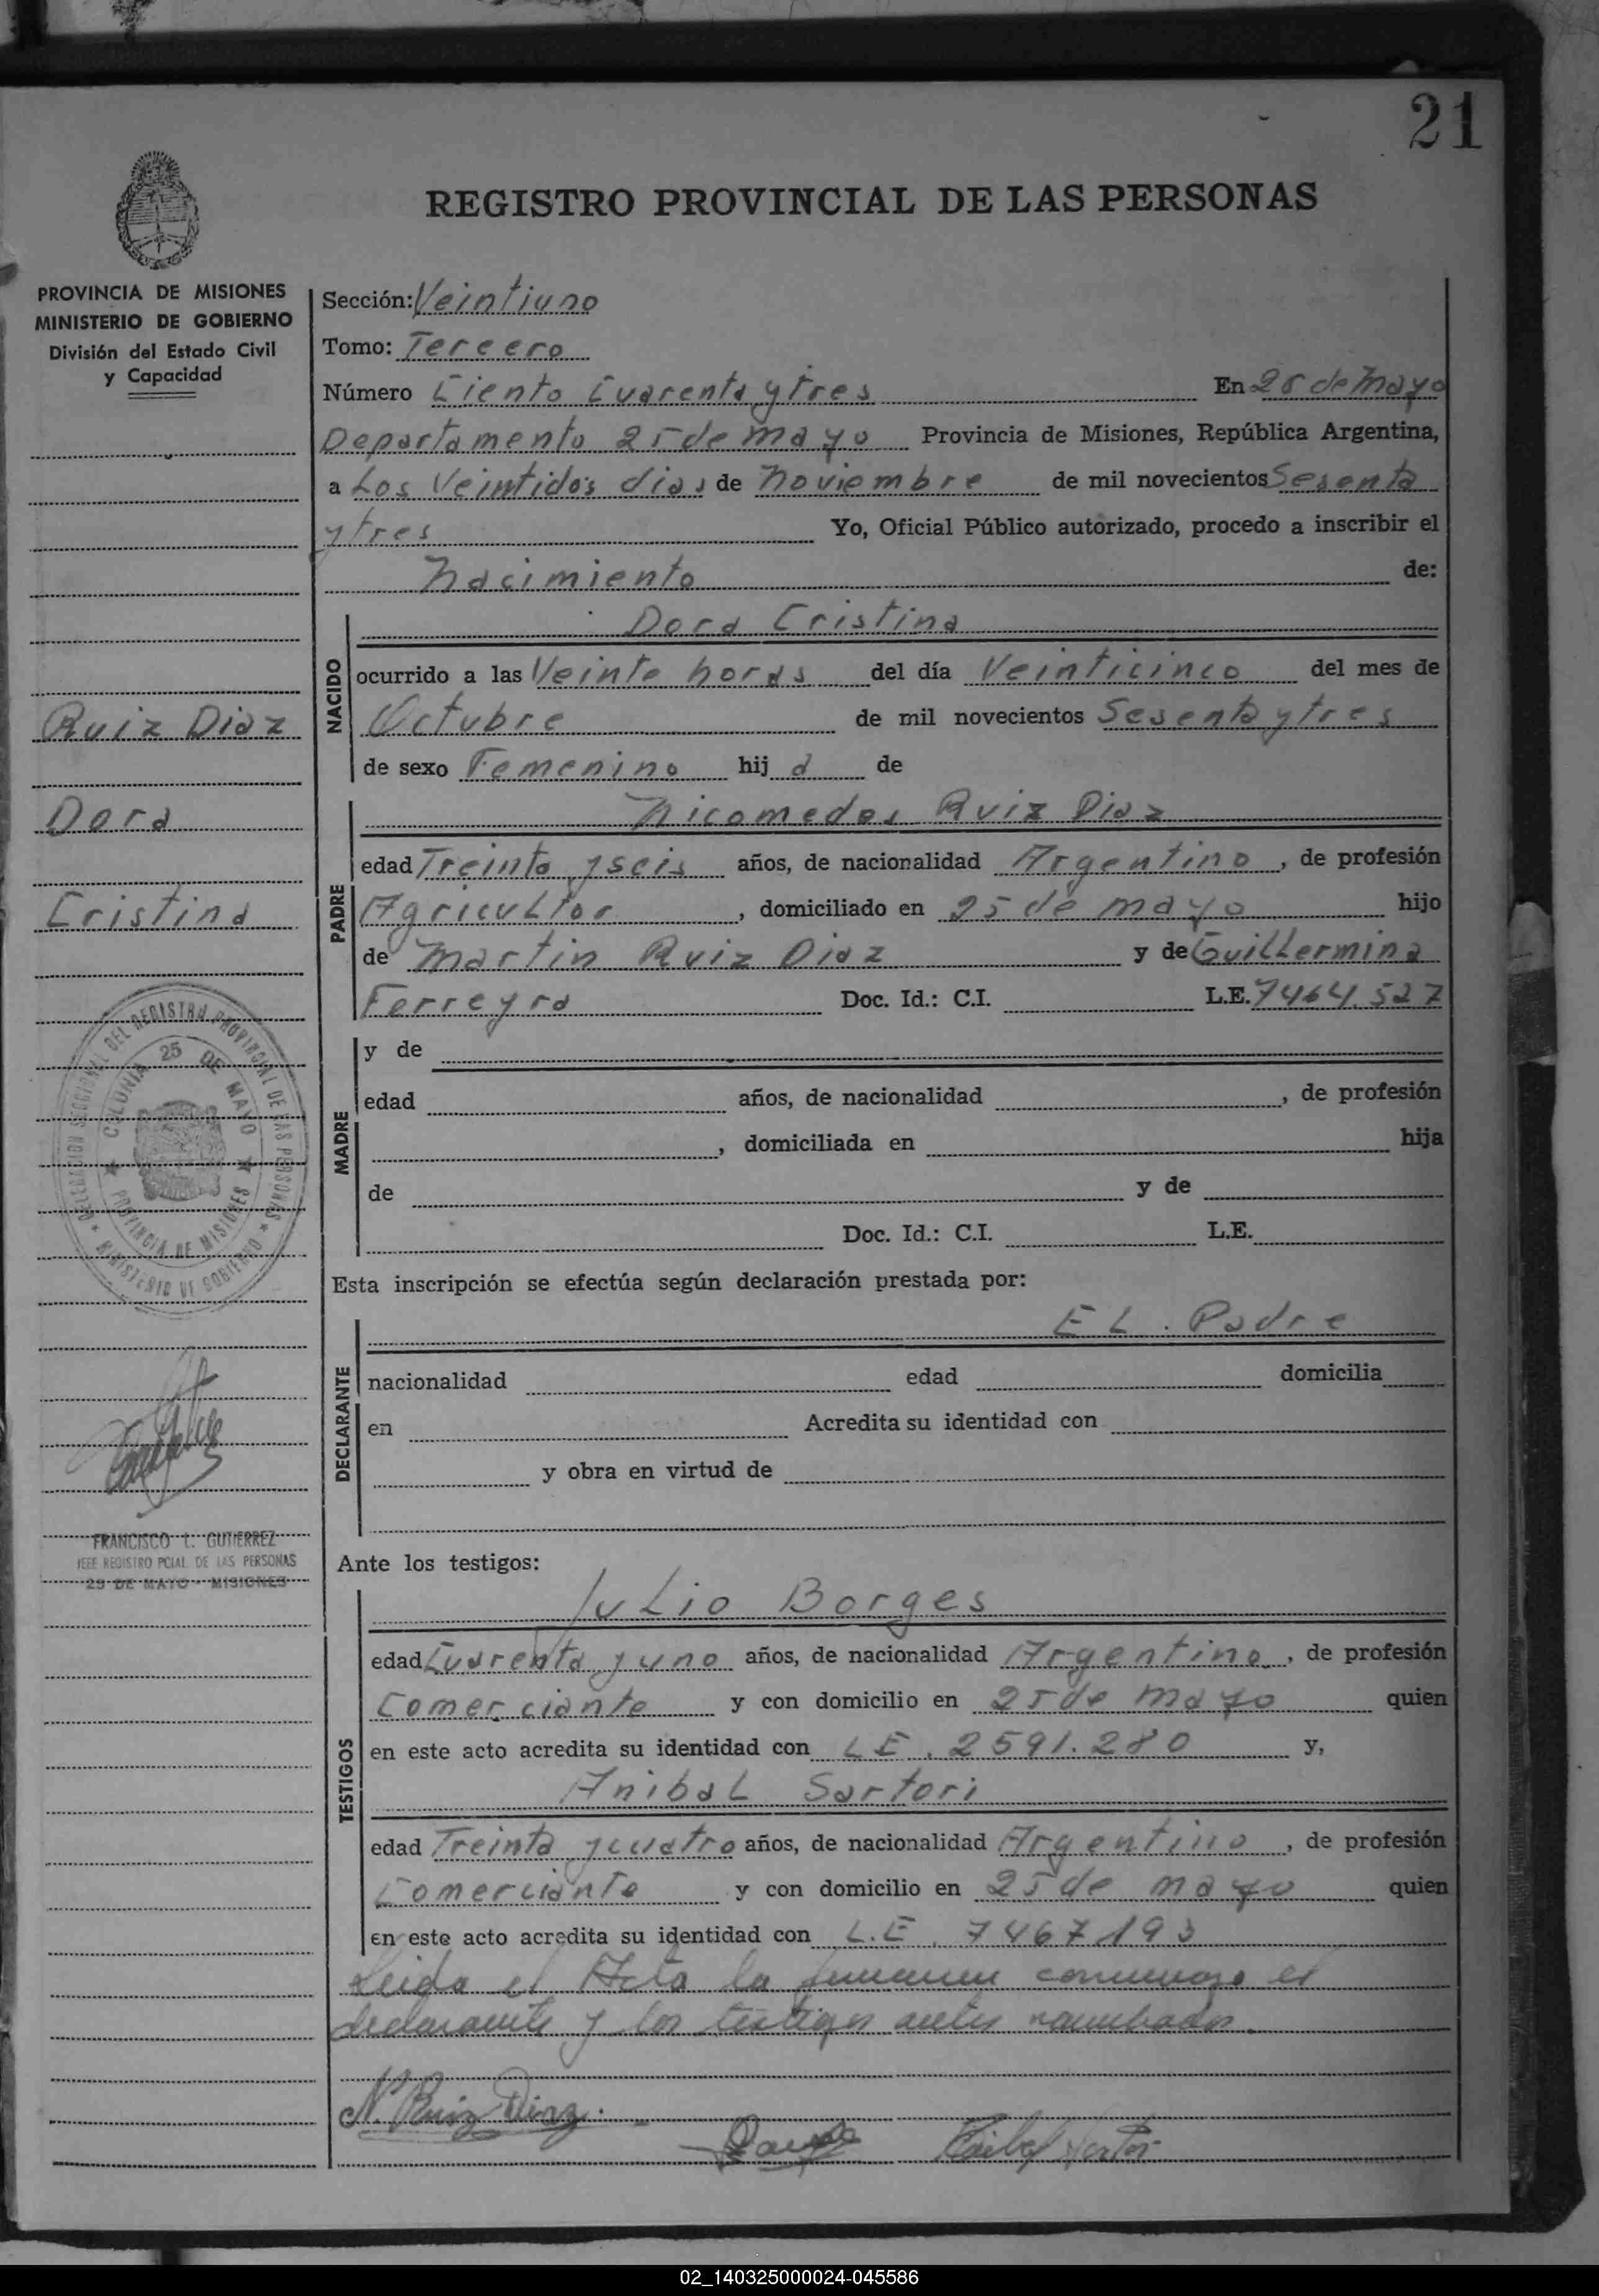 21
REGISTRO PROVINCIAL DE LAS PERSONAS
PROVINCIA DE MISIONES
MINISTERIO DE GOBIERNO
División del Estado Civil
y Capacidad
Ruiz Diaz
Dora
Cristina
DELEGACION SECCIONAL DEL REGISTRO PROVINCIAL DE LAS PERSONAS
★ MINISTERIO DE GOBIERNO ★
COLONIA 25 DE MAYO
★ PROVINCIA DE MISIONES ★
FRANCISCO L. GUTIERREZ
JEFE REGISTRO PCIAL. DE LAS PERSONAS
25 DE MAYO - MISIONES
Sección: Veintiuno
Tomo: Tercero
Número Ciento Cuarenta y tres En 25 de Mayo
Departamento 25 de Mayo Provincia de Misiones, República Argentina,
a Los Veintidos dias de Noviembre de mil novecientos Sesenta
y tres Yo, Oficial Público autorizado, procedo a inscribir el
Nacimiento de:
NACIDO
Dora Cristina
ocurrido a las Veinte horas del día Veinticinco del mes de
Octubre de mil novecientos Sesenta y tres
de sexo Femenino hij a de
PADRE
Nicomedes Ruiz Diaz
edad Treinta y seis años, de nacionalidad Argentino, de profesión
Agricultor, domiciliado en 25 de Mayo hijo
de Martin Ruiz Diaz y de Guillermina
Ferreyra Doc. Id.: C.I. L.E. 7464.527
MADRE
y de
edad años, de nacionalidad , de profesión
, domiciliada en hija
de y de
Doc. Id.: C.I. L.E.
Esta inscripción se efectúa según declaración prestada por:
DECLARANTE
EL. Padre
nacionalidad edad domicilia
en Acredita su identidad con
y obra en virtud de
Ante los testigos:
TESTIGOS
Julio Borges
edad Cuarenta y uno años, de nacionalidad Argentino, de profesión
Comerciante y con domicilio en 25 de Mayo quien
en este acto acredita su identidad con LE. 2591.280 y,
Anibal Sartori
edad Treinta y cuatro años, de nacionalidad Argentino, de profesión
Comerciante y con domicilio en 25 de Mayo quien
en este acto acredita su identidad con L.E. 7467193
Leida el Acta la firman conmigo el
declarante y los testigos antes nombrados.
N. Ruiz Diaz.
Anibal Sartori
02_140325000024-045586